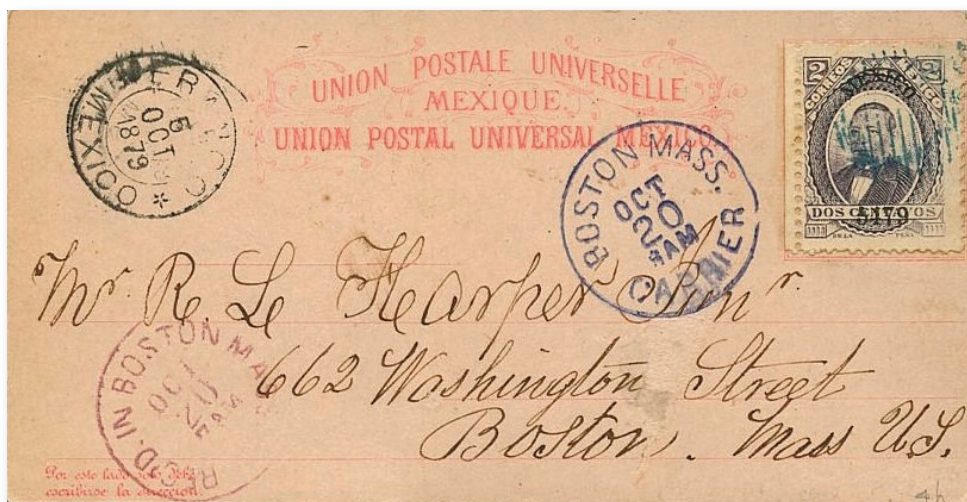 UNION POSTALE UNIVERSELLE
MEXIQUE.
UNION POSTAL UNIVERSAL MEXICO.
MEXICO
5
OCT
1879
BOSTON MASS.
OCT
20
AM
CARRIER
2 2
CORREOS MEXICO
MEXICO
DOS CENTAVOS
5479
Mr. R. Le Harper
662 Washington Street
Boston. Mass U.S.
REC'D. IN BOSTON MA
OCT
20
Por este lado solo debe
escribirse la direccion.
4h